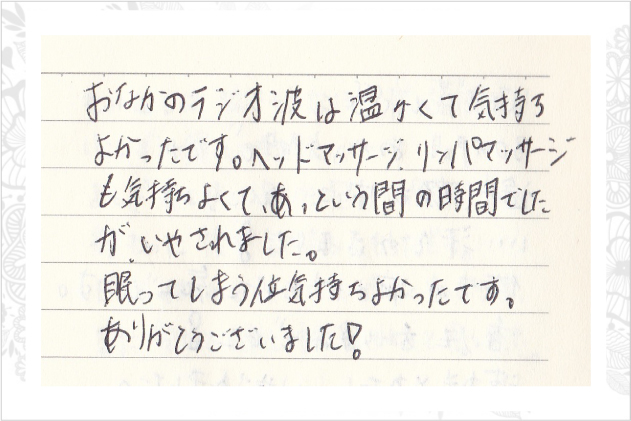 おなかのラジオ波は温かくて気持ち
よかったです。ヘッドマッサージ、リンパマッサージ
も気持ちよくて、あっという間の時間でした
が、いやされました。
眠ってしまう位気持ちよかったです。
ありがとうございました!